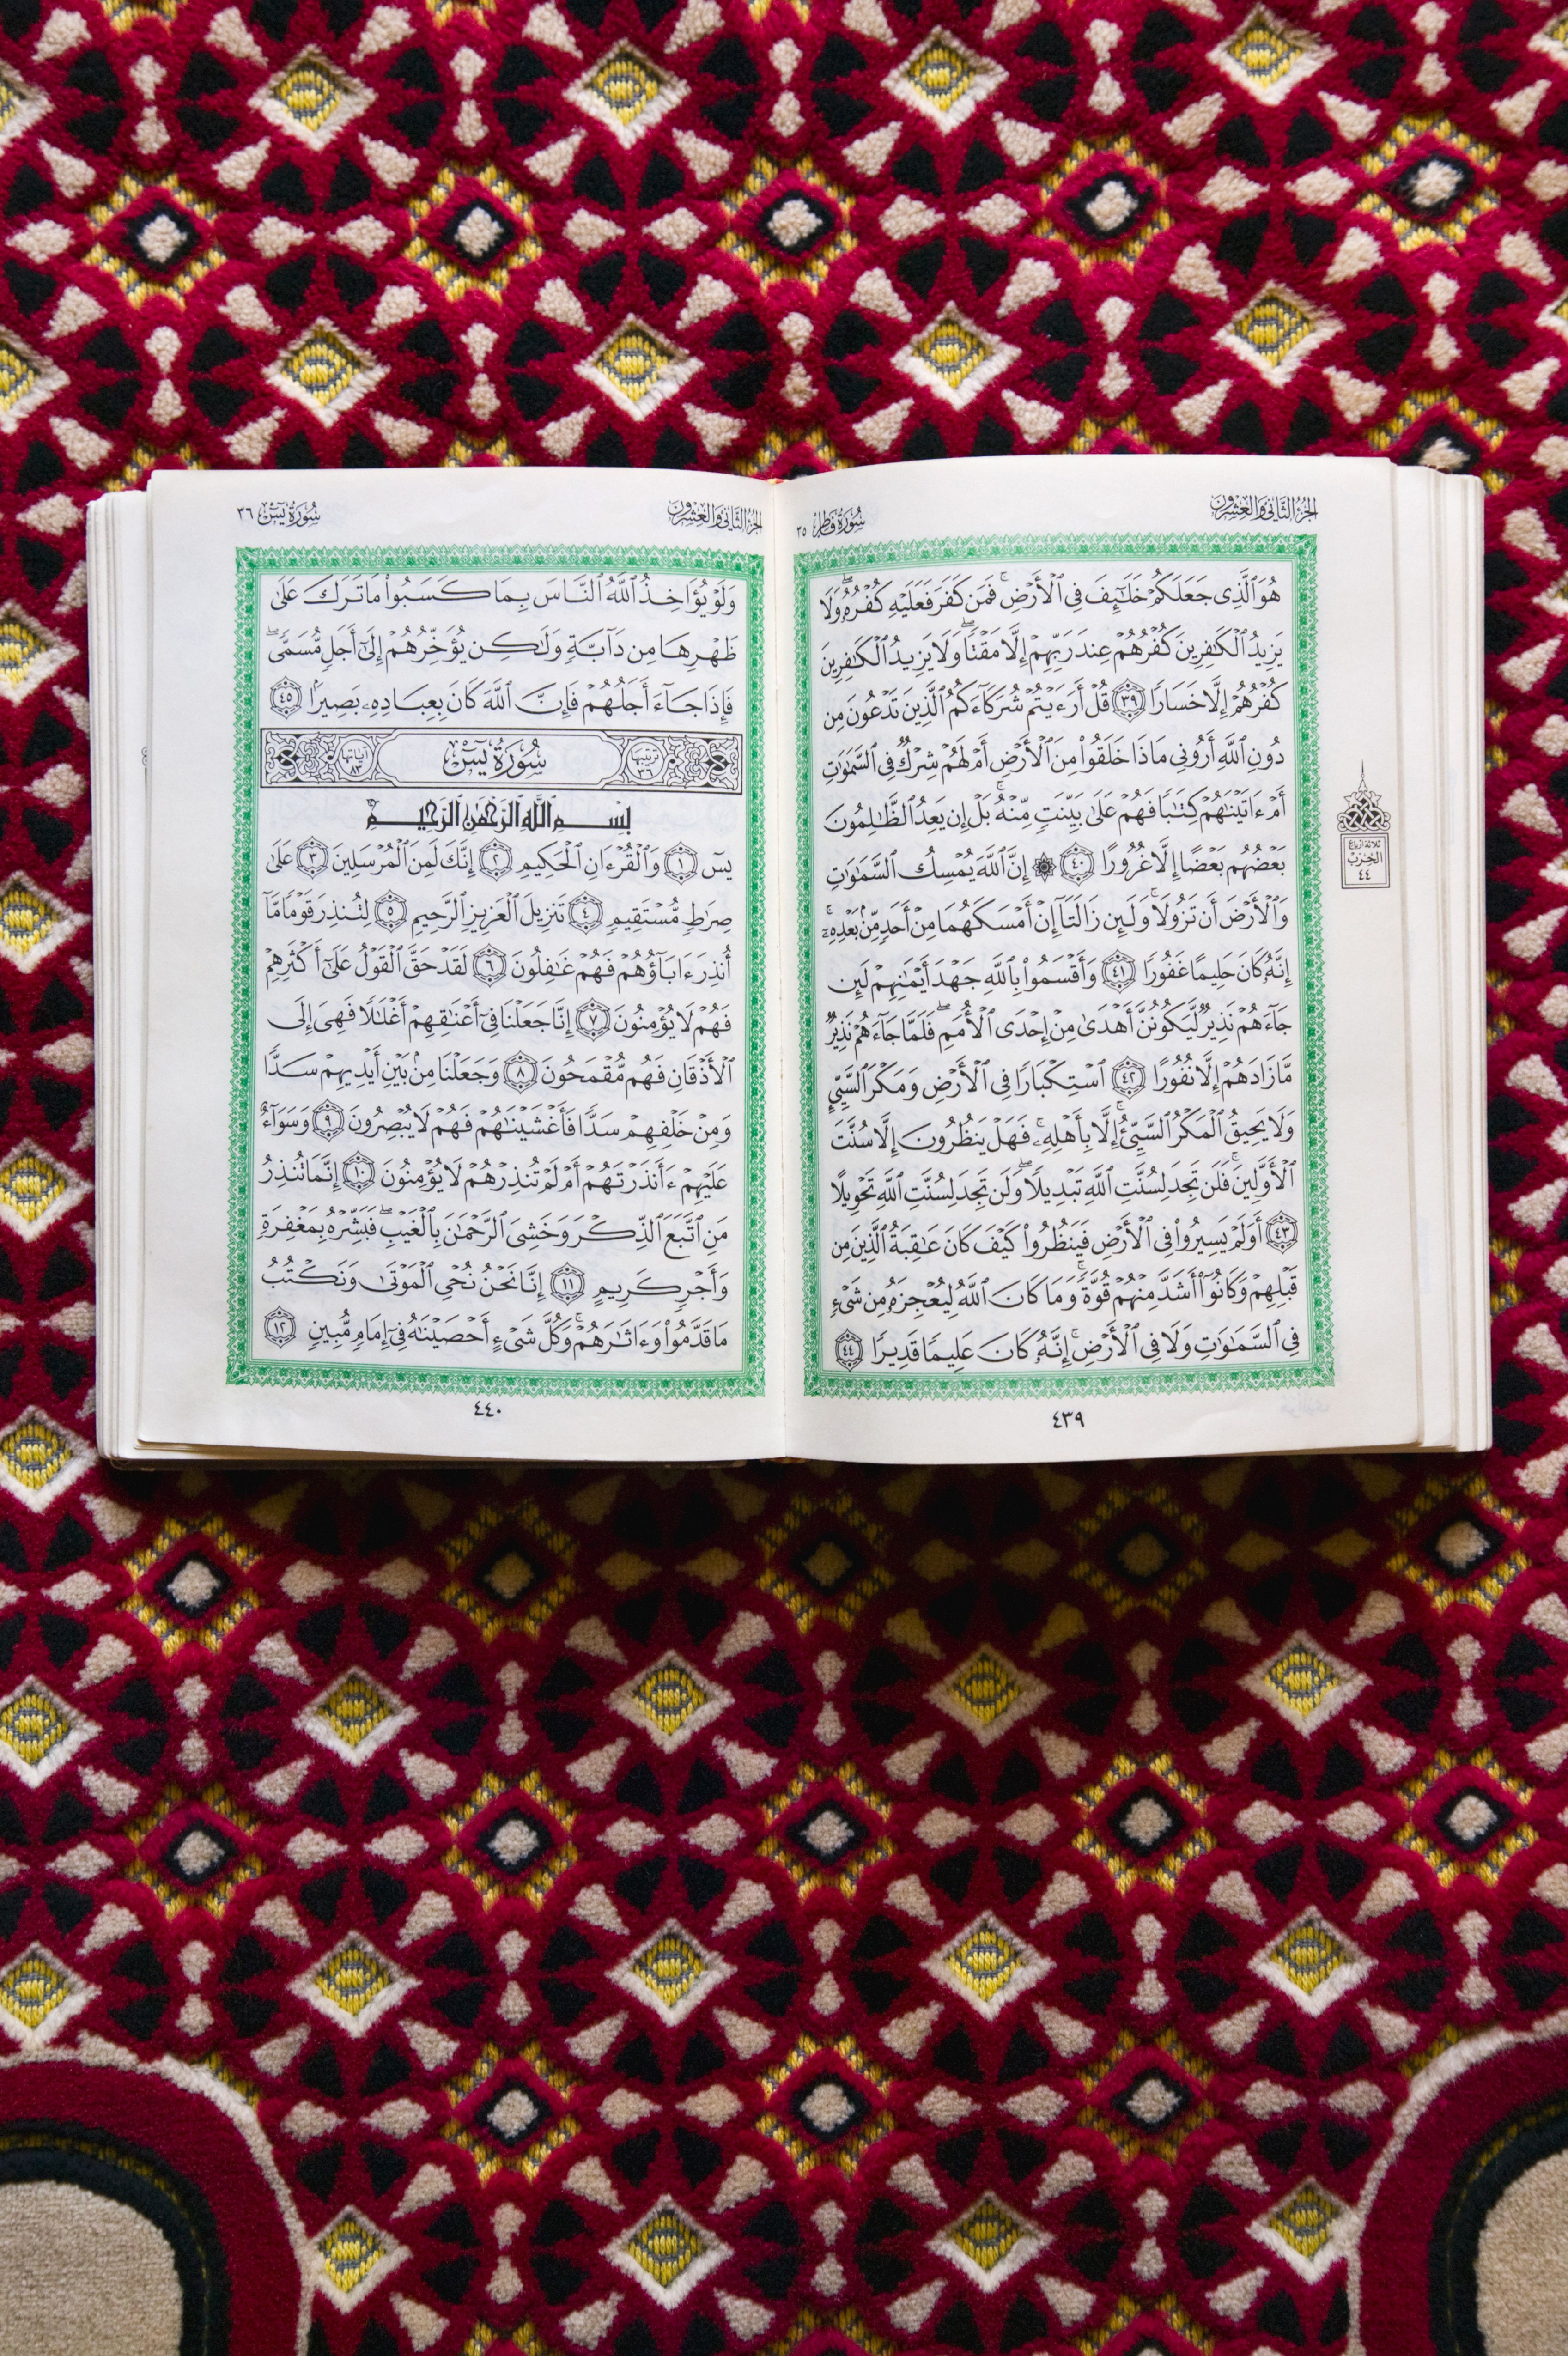 الجزء الثاني والعشرون
سورة فاطر ٣٥
هُوَ ٱلَّذِى جَعَلَكُمْ خَلَٰٓئِفَ فِى ٱلْأَرْضِ ۚ فَمَن كَفَرَ فَعَلَيْهِ كُفْرُهُۥ ۖ وَلَا
يَزِيدُ ٱلْكَٰفِرِينَ كُفْرُهُمْ عِندَ رَبِّهِمْ إِلَّا مَقْتًا ۖ وَلَا يَزِيدُ ٱلْكَٰفِرِينَ
كُفْرُهُمْ إِلَّا خَسَارًا ٣٩ قُلْ أَرَءَيْتُمْ شُرَكَآءَكُمُ ٱلَّذِينَ تَدْعُونَ مِن
دُونِ ٱللَّهِ أَرُونِى مَاذَا خَلَقُوا۟ مِنَ ٱلْأَرْضِ أَمْ لَهُمْ شِرْكٌ فِى ٱلسَّمَٰوَٰتِ
أَمْ ءَاتَيْنَٰهُمْ كِتَٰبًا فَهُمْ عَلَىٰ بَيِّنَتٍ مِّنْهُ ۚ بَلْ إِن يَعِدُ ٱلظَّٰلِمُونَ
بَعْضُهُم بَعْضًا إِلَّا غُرُورًا ٤٠ ۞ إِنَّ ٱللَّهَ يُمْسِكُ ٱلسَّمَٰوَٰتِ
وَٱلْأَرْضَ أَن تَزُولَا ۚ وَلَئِن زَالَتَآ إِنْ أَمْسَكَهُمَا مِنْ أَحَدٍ مِّنۢ بَعْدِهِۦٓ ۚ
إِنَّهُۥ كَانَ حَلِيمًا غَفُورًا ٤١ وَأَقْسَمُوا۟ بِٱللَّهِ جَهْدَ أَيْمَٰنِهِمْ لَئِن
جَآءَهُمْ نَذِيرٌ لَّيَكُونُنَّ أَهْدَىٰ مِنْ إِحْدَى ٱلْأُمَمِ ۖ فَلَمَّا جَآءَهُمْ نَذِيرٌ
مَّا زَادَهُمْ إِلَّا نُفُورًا ٤٢ ٱسْتِكْبَارًا فِى ٱلْأَرْضِ وَمَكْرَ ٱلسَّيِّئِ
وَلَا يَحِيقُ ٱلْمَكْرُ ٱلسَّيِّئُ إِلَّا بِأَهْلِهِۦ ۚ فَهَلْ يَنظُرُونَ إِلَّا سُنَّتَ
ٱلْأَوَّلِينَ ۚ فَلَن تَجِدَ لِسُنَّتِ ٱللَّهِ تَبْدِيلًا ۖ وَلَن تَجِدَ لِسُنَّتِ ٱللَّهِ تَحْوِيلًا
٤٣ أَوَلَمْ يَسِيرُوا۟ فِى ٱلْأَرْضِ فَيَنظُرُوا۟ كَيْفَ كَانَ عَٰقِبَةُ ٱلَّذِينَ مِن
قَبْلِهِمْ وَكَانُوٓا۟ أَشَدَّ مِنْهُمْ قُوَّةً ۚ وَمَا كَانَ ٱللَّهُ لِيُعْجِزَهُۥ مِن شَىْءٍ
فِى ٱلسَّمَٰوَٰتِ وَلَا فِى ٱلْأَرْضِ ۚ إِنَّهُۥ كَانَ عَلِيمًا قَدِيرًا ٤٤
ثلاثة أرباع
الحزب
٤٤
٤٣٩
الجزء الثاني والعشرون
سورة يس ٣٦
وَلَوْ يُؤَاخِذُ ٱللَّهُ ٱلنَّاسَ بِمَا كَسَبُوا۟ مَا تَرَكَ عَلَىٰ
ظَهْرِهَا مِن دَآبَّةٍ وَلَٰكِن يُؤَخِّرُهُمْ إِلَىٰٓ أَجَلٍ مُّسَمًّى ۖ
فَإِذَا جَآءَ أَجَلُهُمْ فَإِنَّ ٱللَّهَ كَانَ بِعِبَادِهِۦ بَصِيرًۢا ٤٥
ترتيبها ٣٦ سورة يس آياتها ٨٣
بِسْمِ ٱللَّهِ ٱلرَّحْمَٰنِ ٱلرَّحِيمِ
يسٓ ١ وَٱلْقُرْءَانِ ٱلْحَكِيمِ ٢ إِنَّكَ لَمِنَ ٱلْمُرْسَلِينَ ٣ عَلَىٰ
صِرَٰطٍ مُّسْتَقِيمٍ ٤ تَنزِيلَ ٱلْعَزِيزِ ٱلرَّحِيمِ ٥ لِتُنذِرَ قَوْمًا مَّآ
أُنذِرَ ءَابَآؤُهُمْ فَهُمْ غَٰفِلُونَ ٦ لَقَدْ حَقَّ ٱلْقَوْلُ عَلَىٰٓ أَكْثَرِهِمْ
فَهُمْ لَا يُؤْمِنُونَ ٧ إِنَّا جَعَلْنَا فِىٓ أَعْنَٰقِهِمْ أَغْلَٰلًا فَهِىَ إِلَى
ٱلْأَذْقَانِ فَهُم مُّقْمَحُونَ ٨ وَجَعَلْنَا مِنۢ بَيْنِ أَيْدِيهِمْ سَدًّا
وَمِنْ خَلْفِهِمْ سَدًّا فَأَغْشَيْنَٰهُمْ فَهُمْ لَا يُبْصِرُونَ ٩ وَسَوَآءٌ
عَلَيْهِمْ ءَأَنذَرْتَهُمْ أَمْ لَمْ تُنذِرْهُمْ لَا يُؤْمِنُونَ ١٠ إِنَّمَا تُنذِرُ
مَنِ ٱتَّبَعَ ٱلذِّكْرَ وَخَشِىَ ٱلرَّحْمَٰنَ بِٱلْغَيْبِ ۖ فَبَشِّرْهُ بِمَغْفِرَةٍ
وَأَجْرٍ كَرِيمٍ ١١ إِنَّا نَحْنُ نُحْىِ ٱلْمَوْتَىٰ وَنَكْتُبُ
مَا قَدَّمُوا۟ وَءَاثَٰرَهُمْ ۚ وَكُلَّ شَىْءٍ أَحْصَيْنَٰهُ فِىٓ إِمَامٍ مُّبِينٍ ١٢
٤٤٠